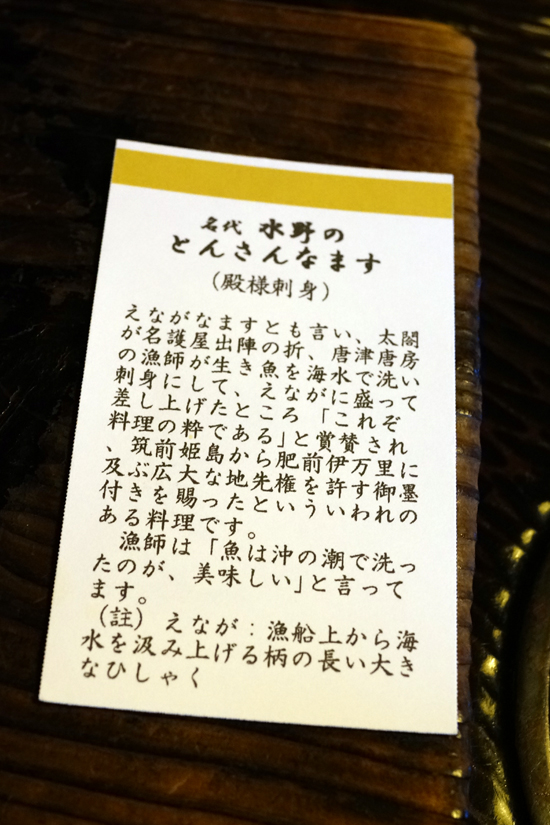 名代 水野の
とんさんなます
(殿様刺身)
えながなますとも言い、太閤
が名護屋出陣の折、唐津唐房
の漁師が生き魚を海水で洗い
刺身にして、えながに盛って
差し上げたところ「これぞ
料理の粋である」と賞賛され
、筑前姫島から肥前伊万里に
及ぶ広大な地先権を許す御墨
付きを賜ったといういわれの
ある料理です。
漁師は「魚は沖の潮で洗っ
たのが、美味しい」と言って
ます。
(註) えなが:漁船上から海
水を汲み上げる柄の長い大き
なひしゃく